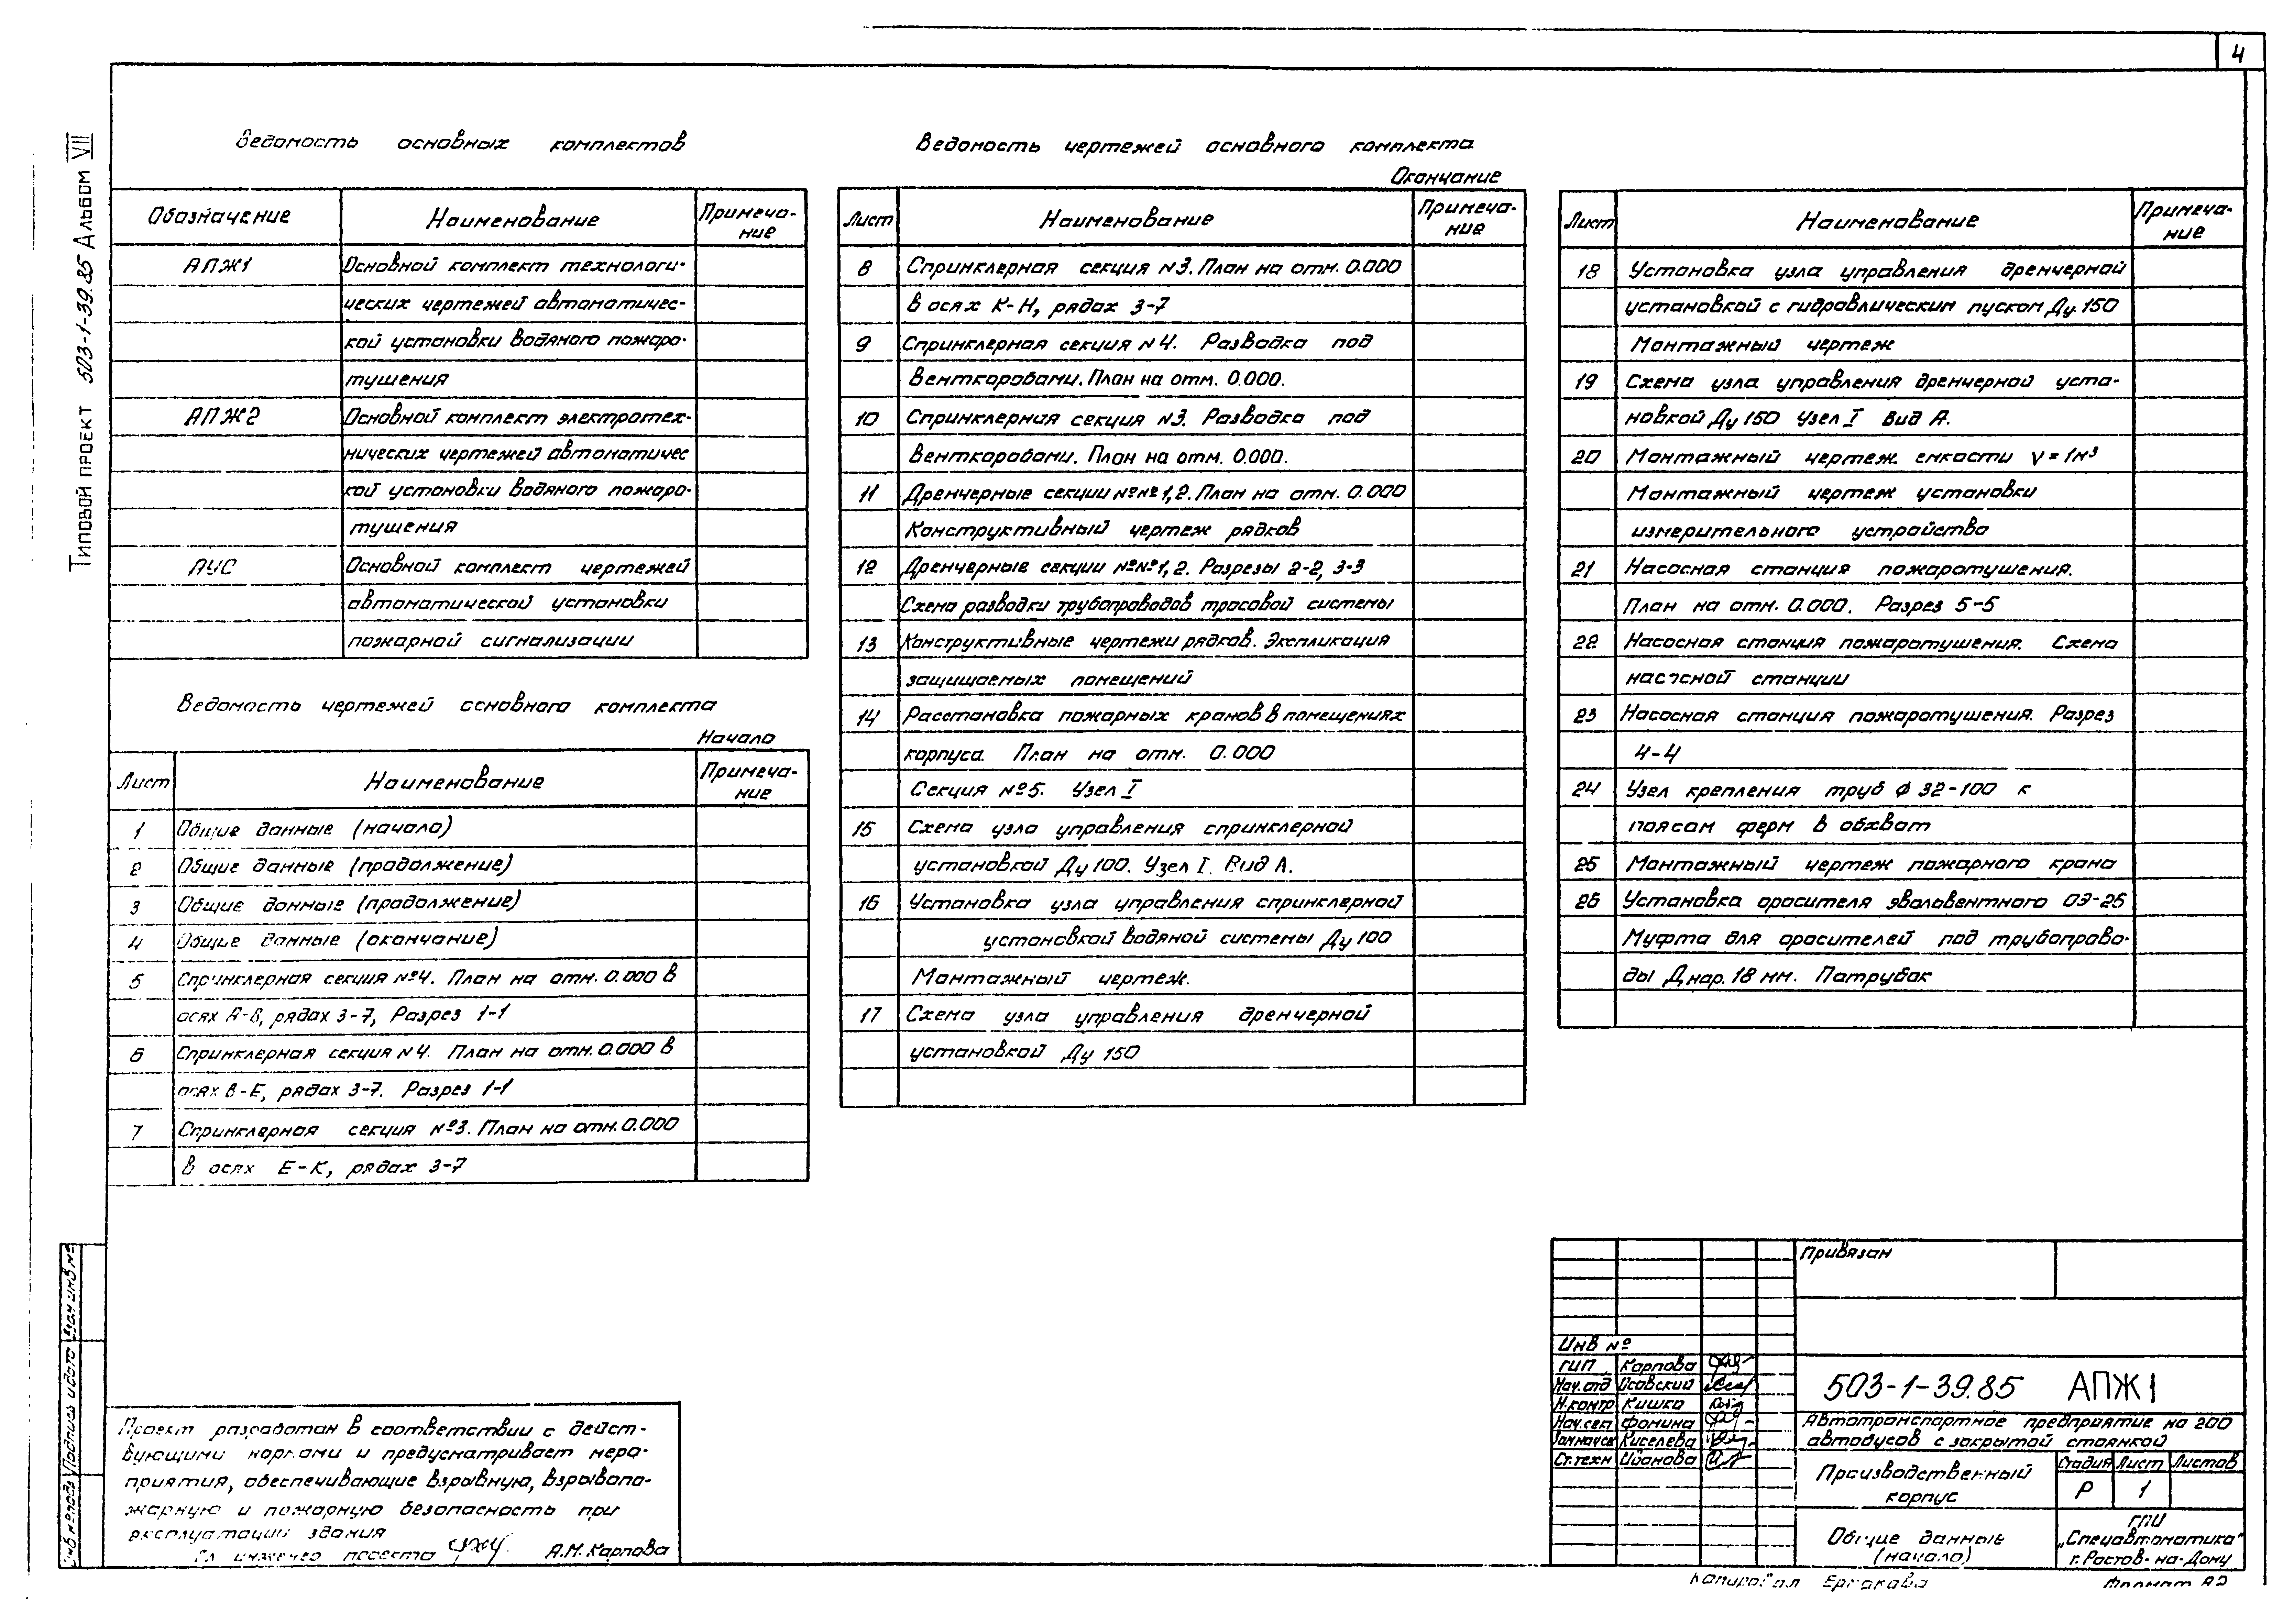 4
Типовой проект 503-1-39.85 Альбом VII
Ведомость основных комплектов
Обозначение Наименование Примеча-
ние
АПЖ1 Основной комплект технологи-
ческих чертежей автоматичес-
кой установки водяного пожаро-
тушения
АПЖ2 Основной комплект электротех-
нических чертежей автоматичес
кой установки водяного пожаро-
тушения
АУС Основной комплект чертежей
автоматической установки
пожарной сигнализации
Ведомость чертежей основного комплекта
Начало
Лист Наименование Примеча-
ние
1 Общие данные (начало)
2 Общие данные (продолжение)
3 Общие данные (продолжение)
4 Общие данные (окончание)
5 Спринклерная секция №4. План на отм. 0.000 в
осях А-В, рядах 3-7, Разрез 1-1
6 Спринклерная секция №4. План на отм. 0.000 в
осях В-Е, рядах 3-7. Разрез 1-1
7 Спринклерная секция №3. План на отм. 0.000
в осях Е-К, рядах 3-7
Ведомость чертежей основного комплекта
Окончание
Лист Наименование Примеча-
ние
8 Спринклерная секция №3. План на отм. 0.000
в осях К-Н, рядах 3-7
9 Спринклерная секция №4. Разводка под
венткоробами. План на отм. 0.000.
10 Спринклерная секция №3. Разводка под
венткоробами. План на отм. 0.000.
11 Дренчерные секции №№1,2. План на отм. 0.000
Конструктивный чертеж рядков
12 Дренчерные секции №№1,2. Разрезы 2-2, 3-3
Схема разводки трубопроводов тросовой системы
13 Конструктивные чертежи рядков. Экспликация
защищаемых помещений
14 Расстановка пожарных кранов в помещениях
корпуса. План на отм. 0.000
Секция №5. Узел I
15 Схема узла управления спринклерной
установкой Ду 100. Узел I. Вид А.
16 Установка узла управления спринклерной
установкой водяной системы Ду 100
Монтажный чертеж.
17 Схема узла управления дренчерной
установкой Ду 150
Лист Наименование Примеча-
ние
18 Установка узла управления дренчерной
установкой с гидравлическим пуском Ду 150
Монтажный чертеж
19 Схема узла управления дренчерной уста-
новкой Ду 150 Узел I Вид А.
20 Монтажный чертеж емкости V=1м³
Монтажный чертеж установки
измерительного устройства
21 Насосная станция пожаротушения.
План на отм. 0.000. Разрез 5-5
22 Насосная станция пожаротушения. Схема
насосной станции
23 Насосная станция пожаротушения. Разрез
4-4
24 Узел крепления труб ϕ 32-100 к
поясам ферм в обхват
25 Монтажный чертеж пожарного крана
26 Установка оросителя эвольвентного ОЭ-25
Муфта для оросителей под трубопрово-
ды Днар. 18 мм. Патрубок
Проект разработан в соответствии с дейст-
вующими нормами и предусматривает меро-
приятия, обеспечивающие взрывную, взрывопо-
жарную и пожарную безопасность при
эксплуатации здания
Гл инженер проекта А.М. Карпова
Инв № подл Подпись и дата Взам инв №
Привязан
Инв №
ГИП Карпова
Нач. отд Осовский
Н. контр Кишка
Нач. сек Фомина
Зам нач сек Киселева
Ст. техн Иванова
503-1-39.85 АПЖ1
Автотранспортное предприятие на 200
автобусов с закрытой стоянкой
Производственный
корпус
Стадия Лист Листов
Р 1
Общие данные
(начало)
ГПИ
„Спецавтоматика"
г. Ростов-на-Дону
Копировал Ермакова
Формат А2